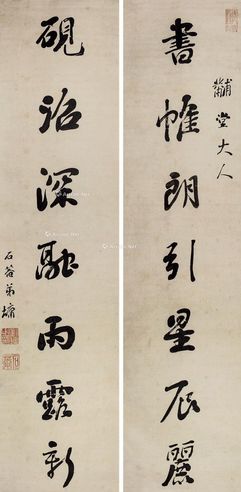 黼堂大人
書帷朗引星辰麗
硯沼深融雨露新
石菴弟墉